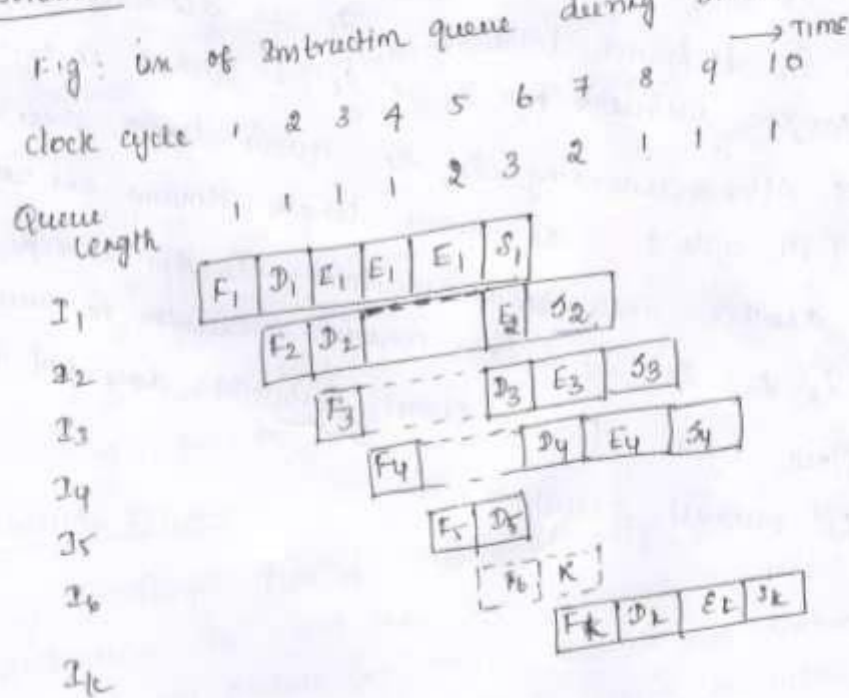 Fig: Use of Instruction queue during
→ TIME
clock cycle 1 2 3 4 5 6 7 8 9 10
Queue length 1 1 1 1 2 3 2 1 1 1
I1 F1 D1 E1 E1 E1 S1
I2 F2 D2 E2 S2
I3 F3 D3 E3 S3
I4 F4 D4 E4 S4
I5 F5 D5
I6 F6 X
Ik Fk Dk Ek Sk